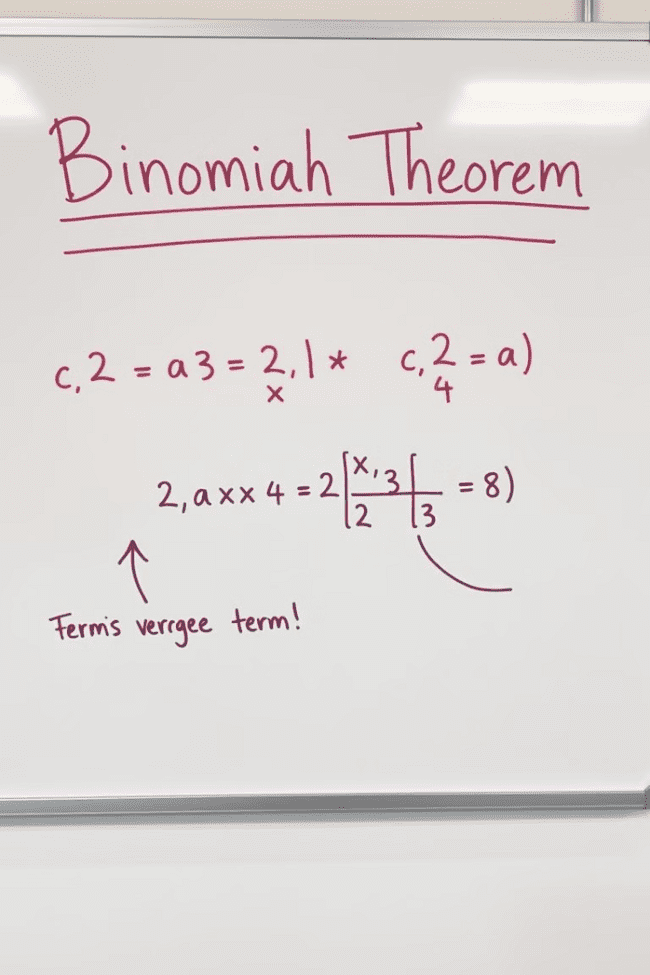 Binomiah Theorem
c,2 = a3 = 2,1* c,2 = a)
x 4
2,axx4 = 2|x,3| = 8)
2 3
Ferm's verrgee term!